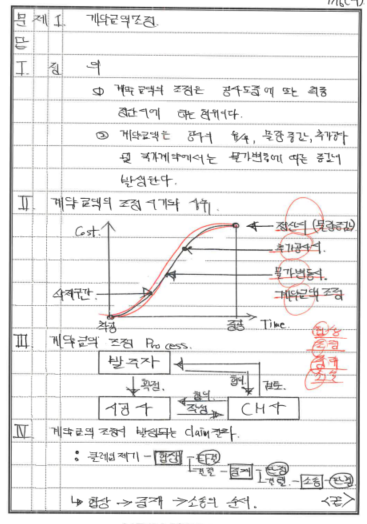 문제 I. 계약금액조정.
답
I. 정 의
① 계약금액의 조정은 공사도중에 또는 최종
정산시에 하는 절차이다.
② 계약금액은 공사의 물량증감, 추가공사
및 국가계약에서는 물가변동에 따른 증감이
발생한다.
II. 계약금액의 조정 시기와
Cost.
정산시 (물량증감)
추가공사시.
물가변동시.
계약금액 조정
착공
준공
Time.
III. 계약금액의 조정 Process.
발주자
확정.
협의
검토.
시공사
협의
작성
CM사
협상
조정
중재
소송
IV. 계약금액의 조정시 발생되는 claim 관리.
: 클레임 제기 - 협상 - 타결
결렬 - 중재 - 타결
결렬 - 소송 - 판결
↳ 협상 → 중재 → 소송의 순서.
<끝>